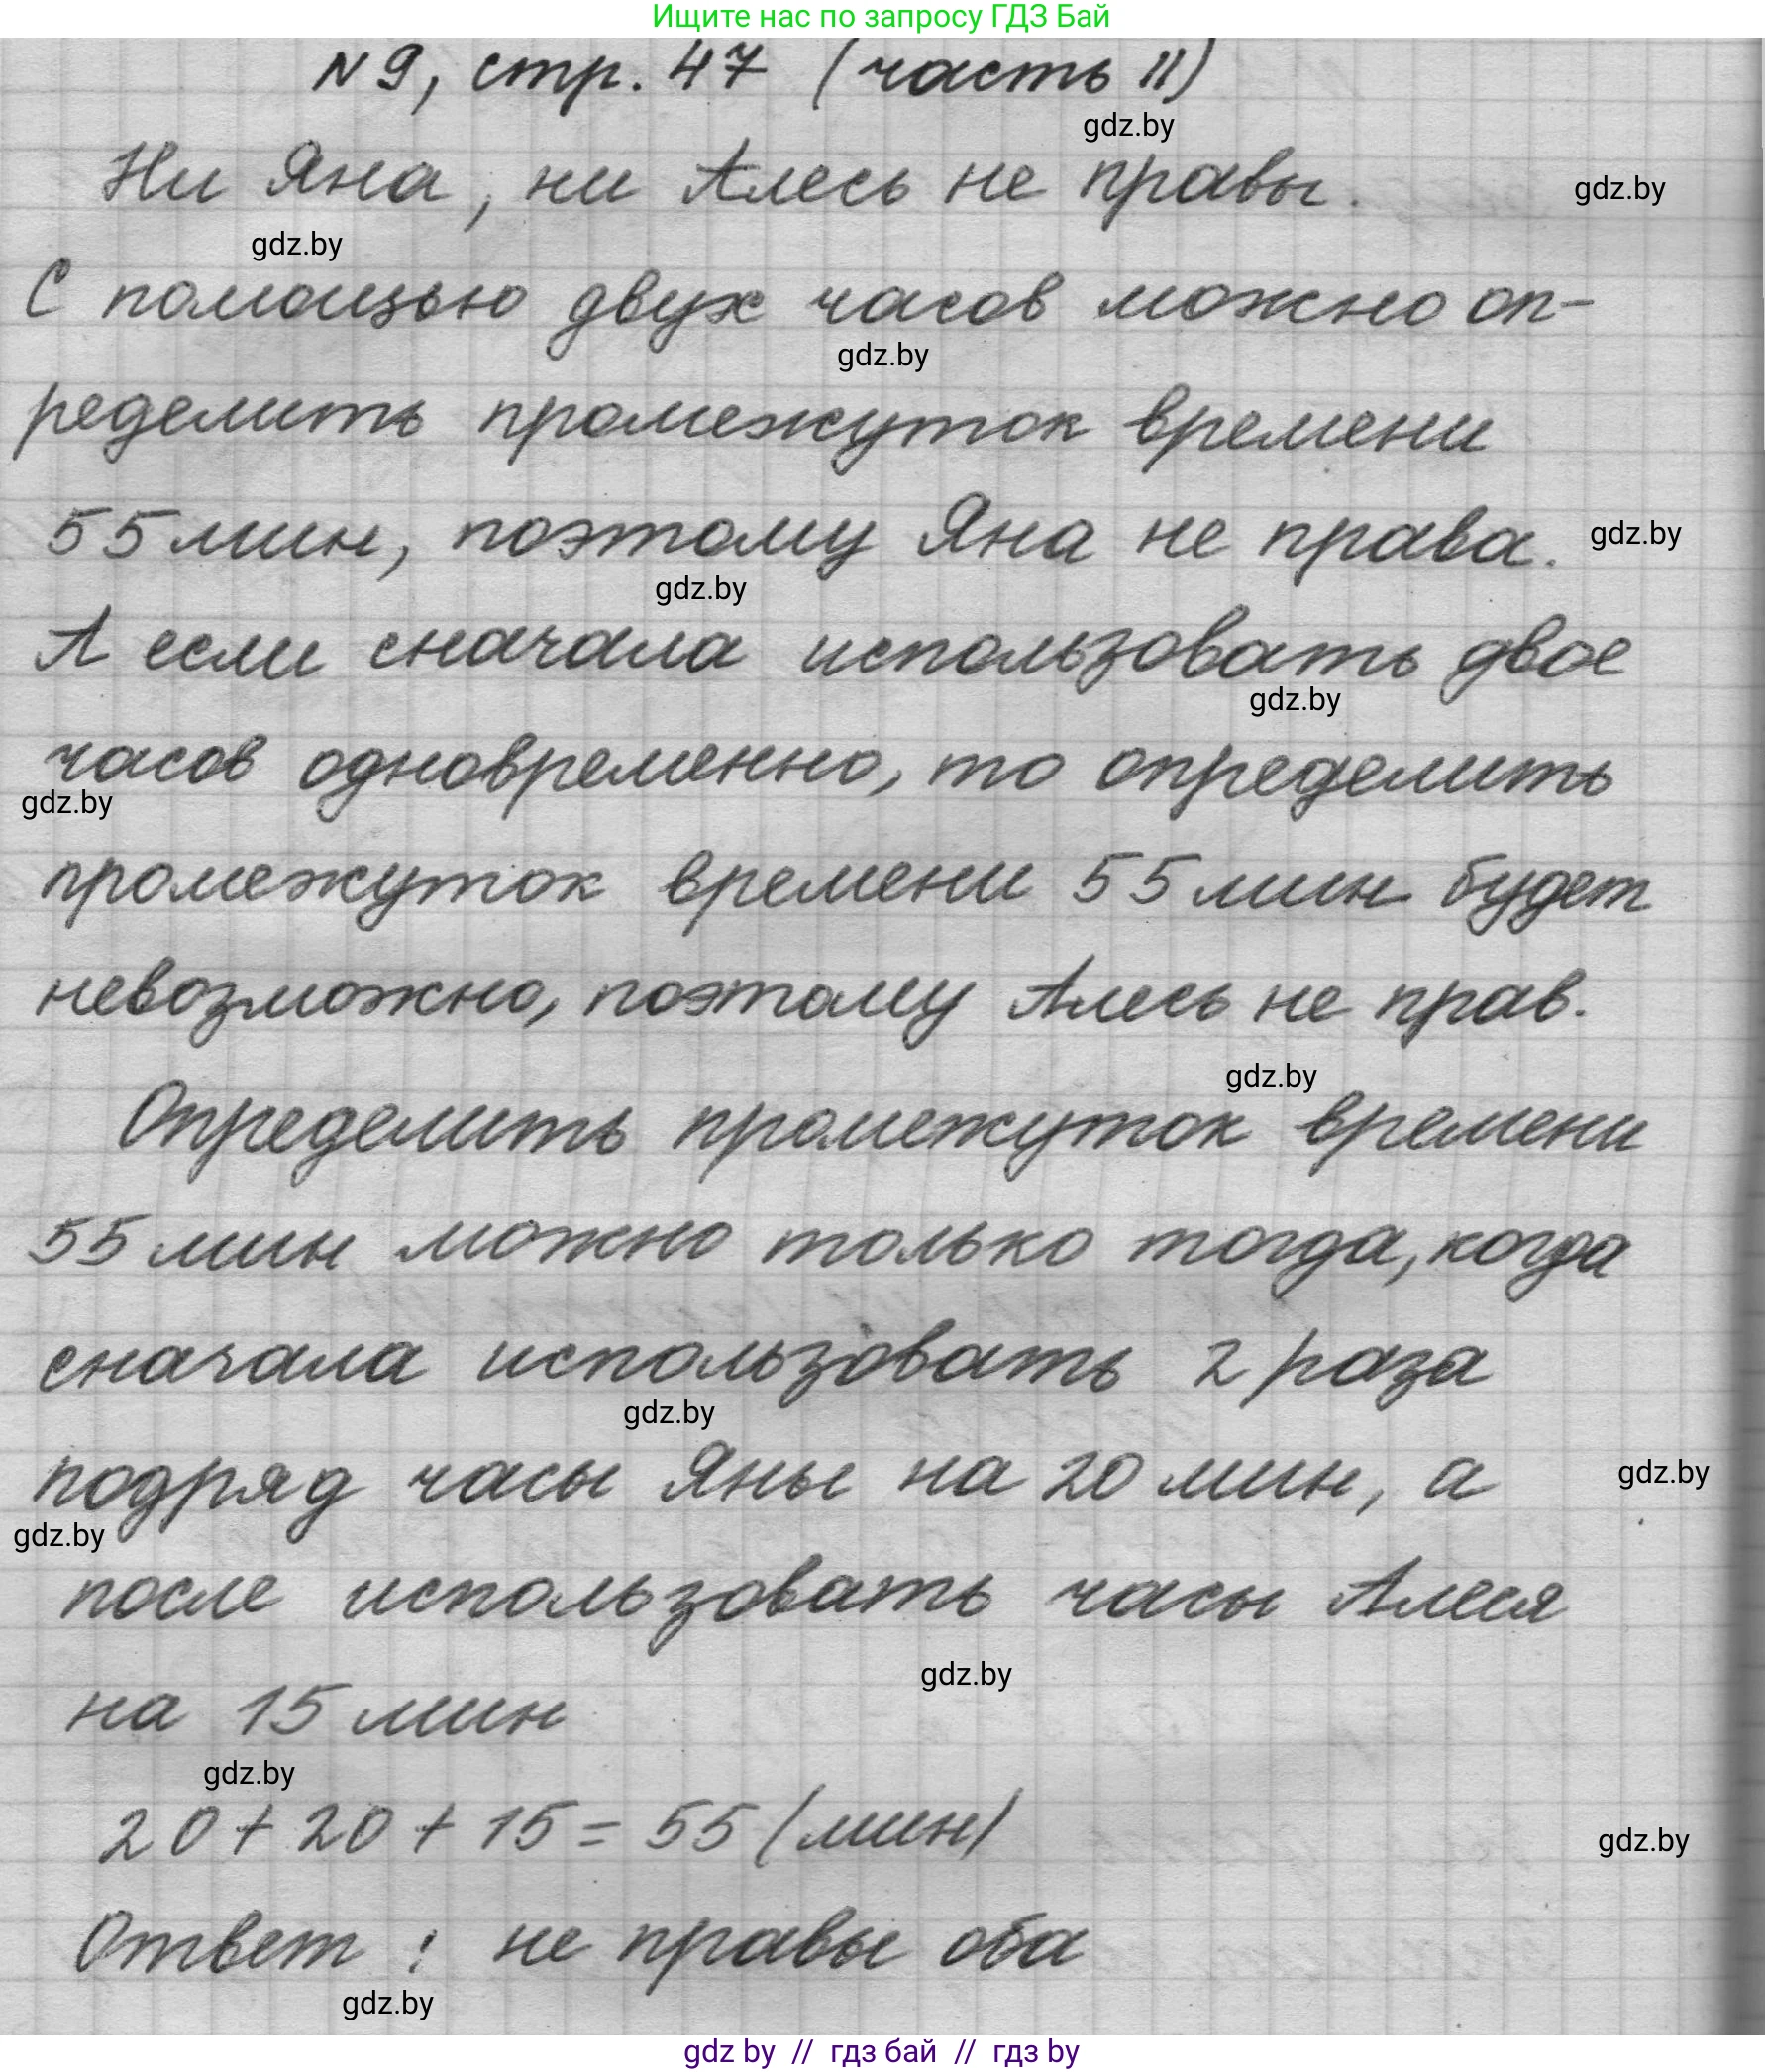 Ищите нас по запросу ГДЗ Бай
N9, стр. 47 (часть II)
gdz.by
Ни Яна, ни Алесь не правы.
gdz.by
gdz.by
С помощью двух часов можно оп-
gdz.by
ределить промежуток времени
55 мин, поэтому Яна не права.
gdz.by
gdz.by
А если сначала использовать двое
gdz.by
часов одновременно, то определить
gdz.by
промежуток времени 55 мин будет
невозможно, поэтому Алесь не прав.
gdz.by
Определить промежуток времени
55 мин можно только тогда, когда
сначала использовать 2 раза
gdz.by
подряд часы Яны на 20 мин, а
gdz.by
gdz.by
после использовать часы Алеся
gdz.by
на 15 мин
gdz.by
20 + 20 + 15 = 55 (мин)
gdz.by
Ответ: не правы оба
gdz.by
gdz by // гдз бай // гдз by